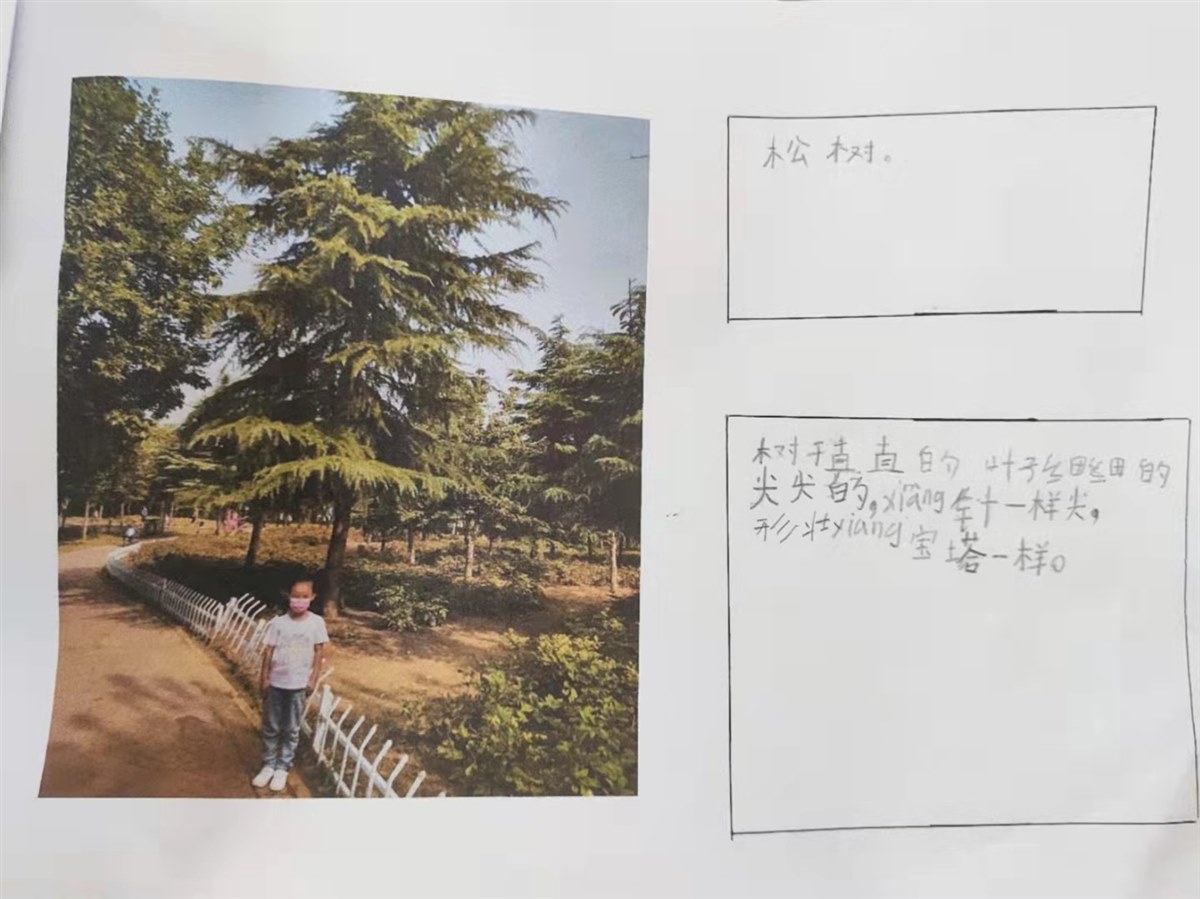 松树。
树直直的叶子细细的
尖尖的,xiāng针一样尖,
形壮xiang宝塔一样。